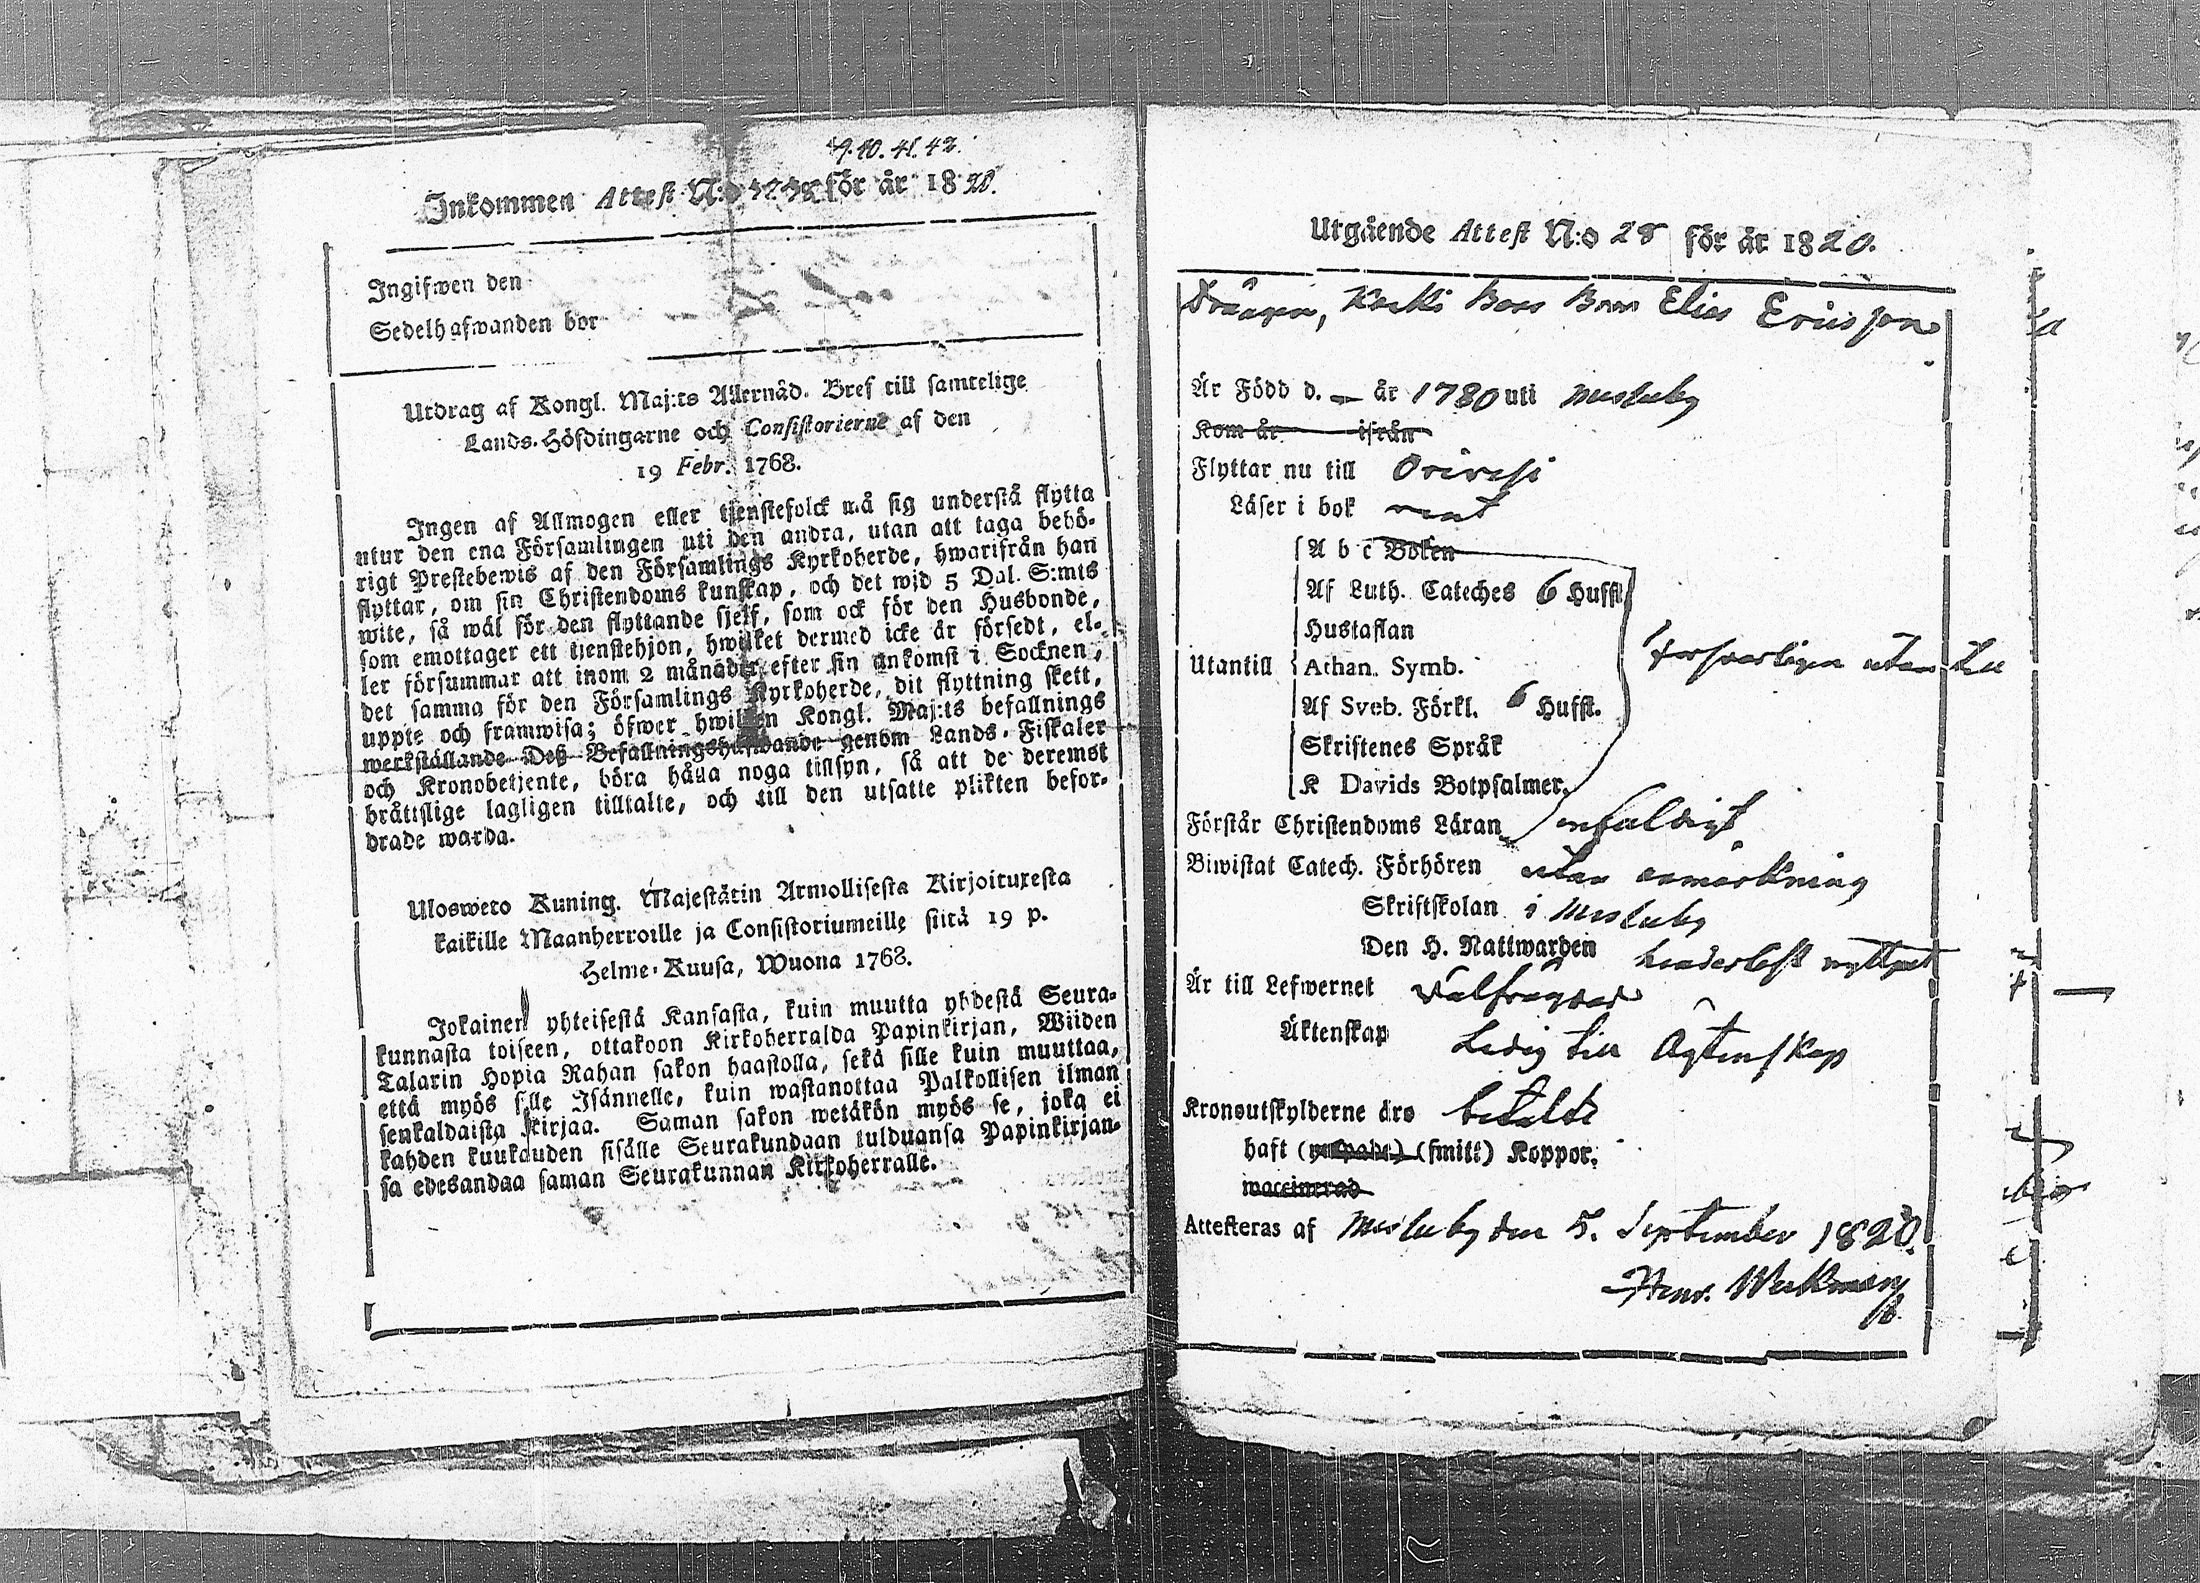 39. 40. 41. 42.
Inkommen Attest N:o för år 1820.
Ingifwen den
Sedelhafwanden bor
Utdrag af Kongl. Maj:ts Allernåd. Bref till samtelige
Lands-Höfdingarne och Consistorierne af den
19 Febr. 1768.
Ingen af Allmogen eller tjenstefolck må sig understå flytta
utur den ena Församlingen uti den andra, utan att taga behö-
rigt Prestebewis af den Församlings Kyrkoherde, hwarifrån han
flyttar, om sin Christendoms kunskap, och det wid 5 Dal. S:mts
wite, så wäl för den flyttande sjelf, som ock för den Husbonde,
som emottager ett tjenstehjon, hwilket dermed icke är försedt, el-
ler försummar att inom 2 månader efter sin ankomst i Socknen,
det samma för den Församlings Kyrkoherde, dit flyttning skett,
uppte och framwisa; öfwer hwilken Kongl. Maj:ts befallnings
werkställande Deß Befallningshafwande genom Lands-Fiskaler
och Kronobetjente, böra hålla noga tillsyn, så att de deremot
bråttslige lagligen tilltalte, och till den utsatte plikten befor-
drade warda.
Ulosweto Kuning. Majestätin Armollisesta Kirjoituxesta
kaikille Maanherroille ja Consistoriumeille siitä 19 p.
Helme-Kuusa, Wuona 1768.
Jokainen yhteisestä Kansasta, kuin muutta yhdestä Seura-
kunnasta toiseen, ottakoon Kirkoherralda Papinkirjan, Wiiden
Talarin Hopia Rahan sakon haastolla, sekä sille kuin muuttaa,
että myös sille Isännelle, kuin wastanottaa Palkollisen ilman
senkaldaista kirjaa. Saman sakon wetäkön myös se, joka ei
kahden kuukauden sisälle Seurakundaan tulduansa Papinkirjan-
sa edesandaa saman Seurakunnan Kirkoherralle.
Utgående Attest N:o 28 för år 1820.
Drängen, Elias Ericsson
Är Född d. — år 1780 uti Messuby
Kom år ifrån
Flyttar nu till Orivesi
Läser i bok rent
A b c Boken
Af Luth. Cateches 6 Huffst.
Hustaflan
Utantill Athan. Symb. försvarligen utan
Af Sveb. Förkl. 6 Huffst.
Skriftenes Språk
K Davids Botpsalmer.
Förstår Christendoms Läran enfaldigt
Biwistat Catech. Förhören utan anmärkning
Skriftskolan i Messuby
Den H. Nattwarden nyttjat
Är till Lefwernet välfrägdad
Äktenskap Ledig till Ägtenskap
Kronoutskylderne äro betalde
haft (smitt) Koppor.
waccinerad
Attesteras af Messuby den 5. September 1820.
Henr. Weckman